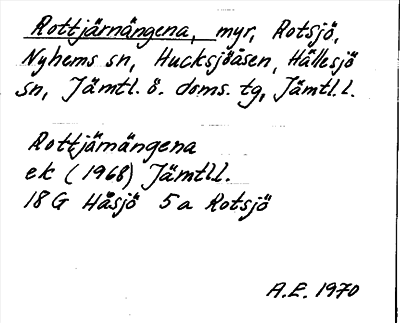 Rottjärnängena, myr, Rotsjö,
Nyhems sn, Hucksjöåsen, Hällesjö
sn, Jämtl. ö. doms. tg, Jämtl.l.
Rottjärnängena
ek (1968) Jämtl.l.
18G Håsjö 5a Rotsjö
A.E. 1970